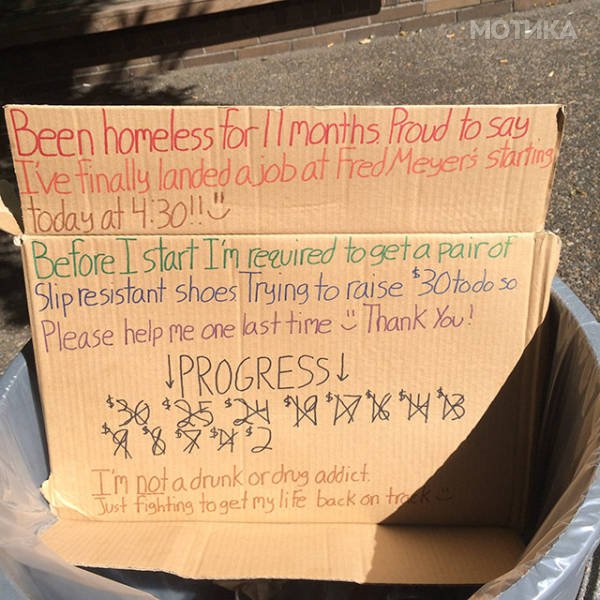 МОТИКА
Been homeless for 11 months. Proud to say
I've finally landed a job at Fred Meyer's starting
today at 4:30!!
Before I start I'm required to get a pair of
Slip resistant shoes. Trying to raise $30 to do so
Please help me one last time Thank You!
↓PROGRESS↓
$30 $25 $24 $19 $17 $16 $14 $13
$9 $8 $7 $4 $2
I'm not a drunk or drug addict.
Just fighting to get my life back on track